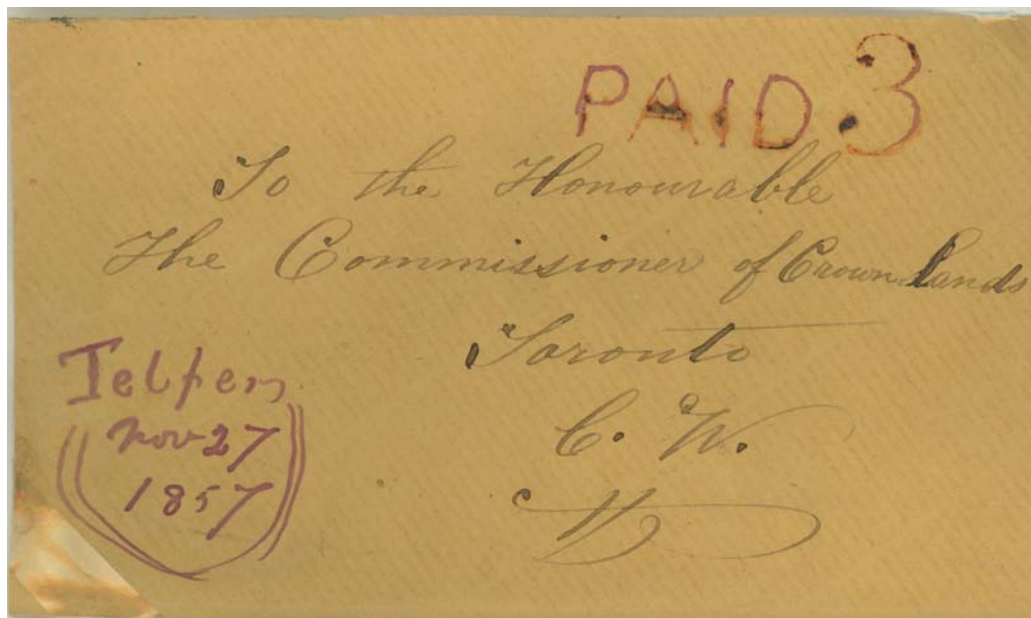 PAID 3
To the Honourable
The Commissioner of Crown Lands
Toronto
C. W.
Telfer
Nov 27
1857